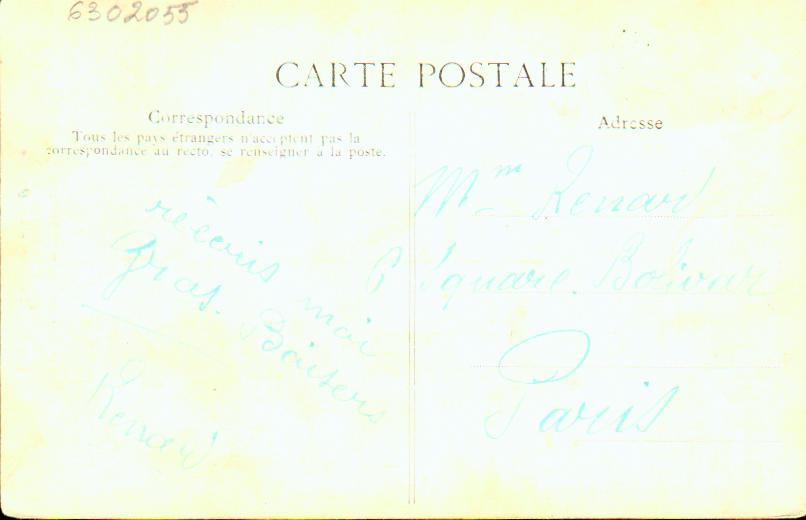 6302055
CARTE POSTALE
Correspondance
Tous les pays étrangers n'acceptent pas la
correspondance au recto, se renseigner à la poste.
Adresse
réécris moi
Gros. Baisers
Renard
Mme Renard
6 Square Bolivar
Paris